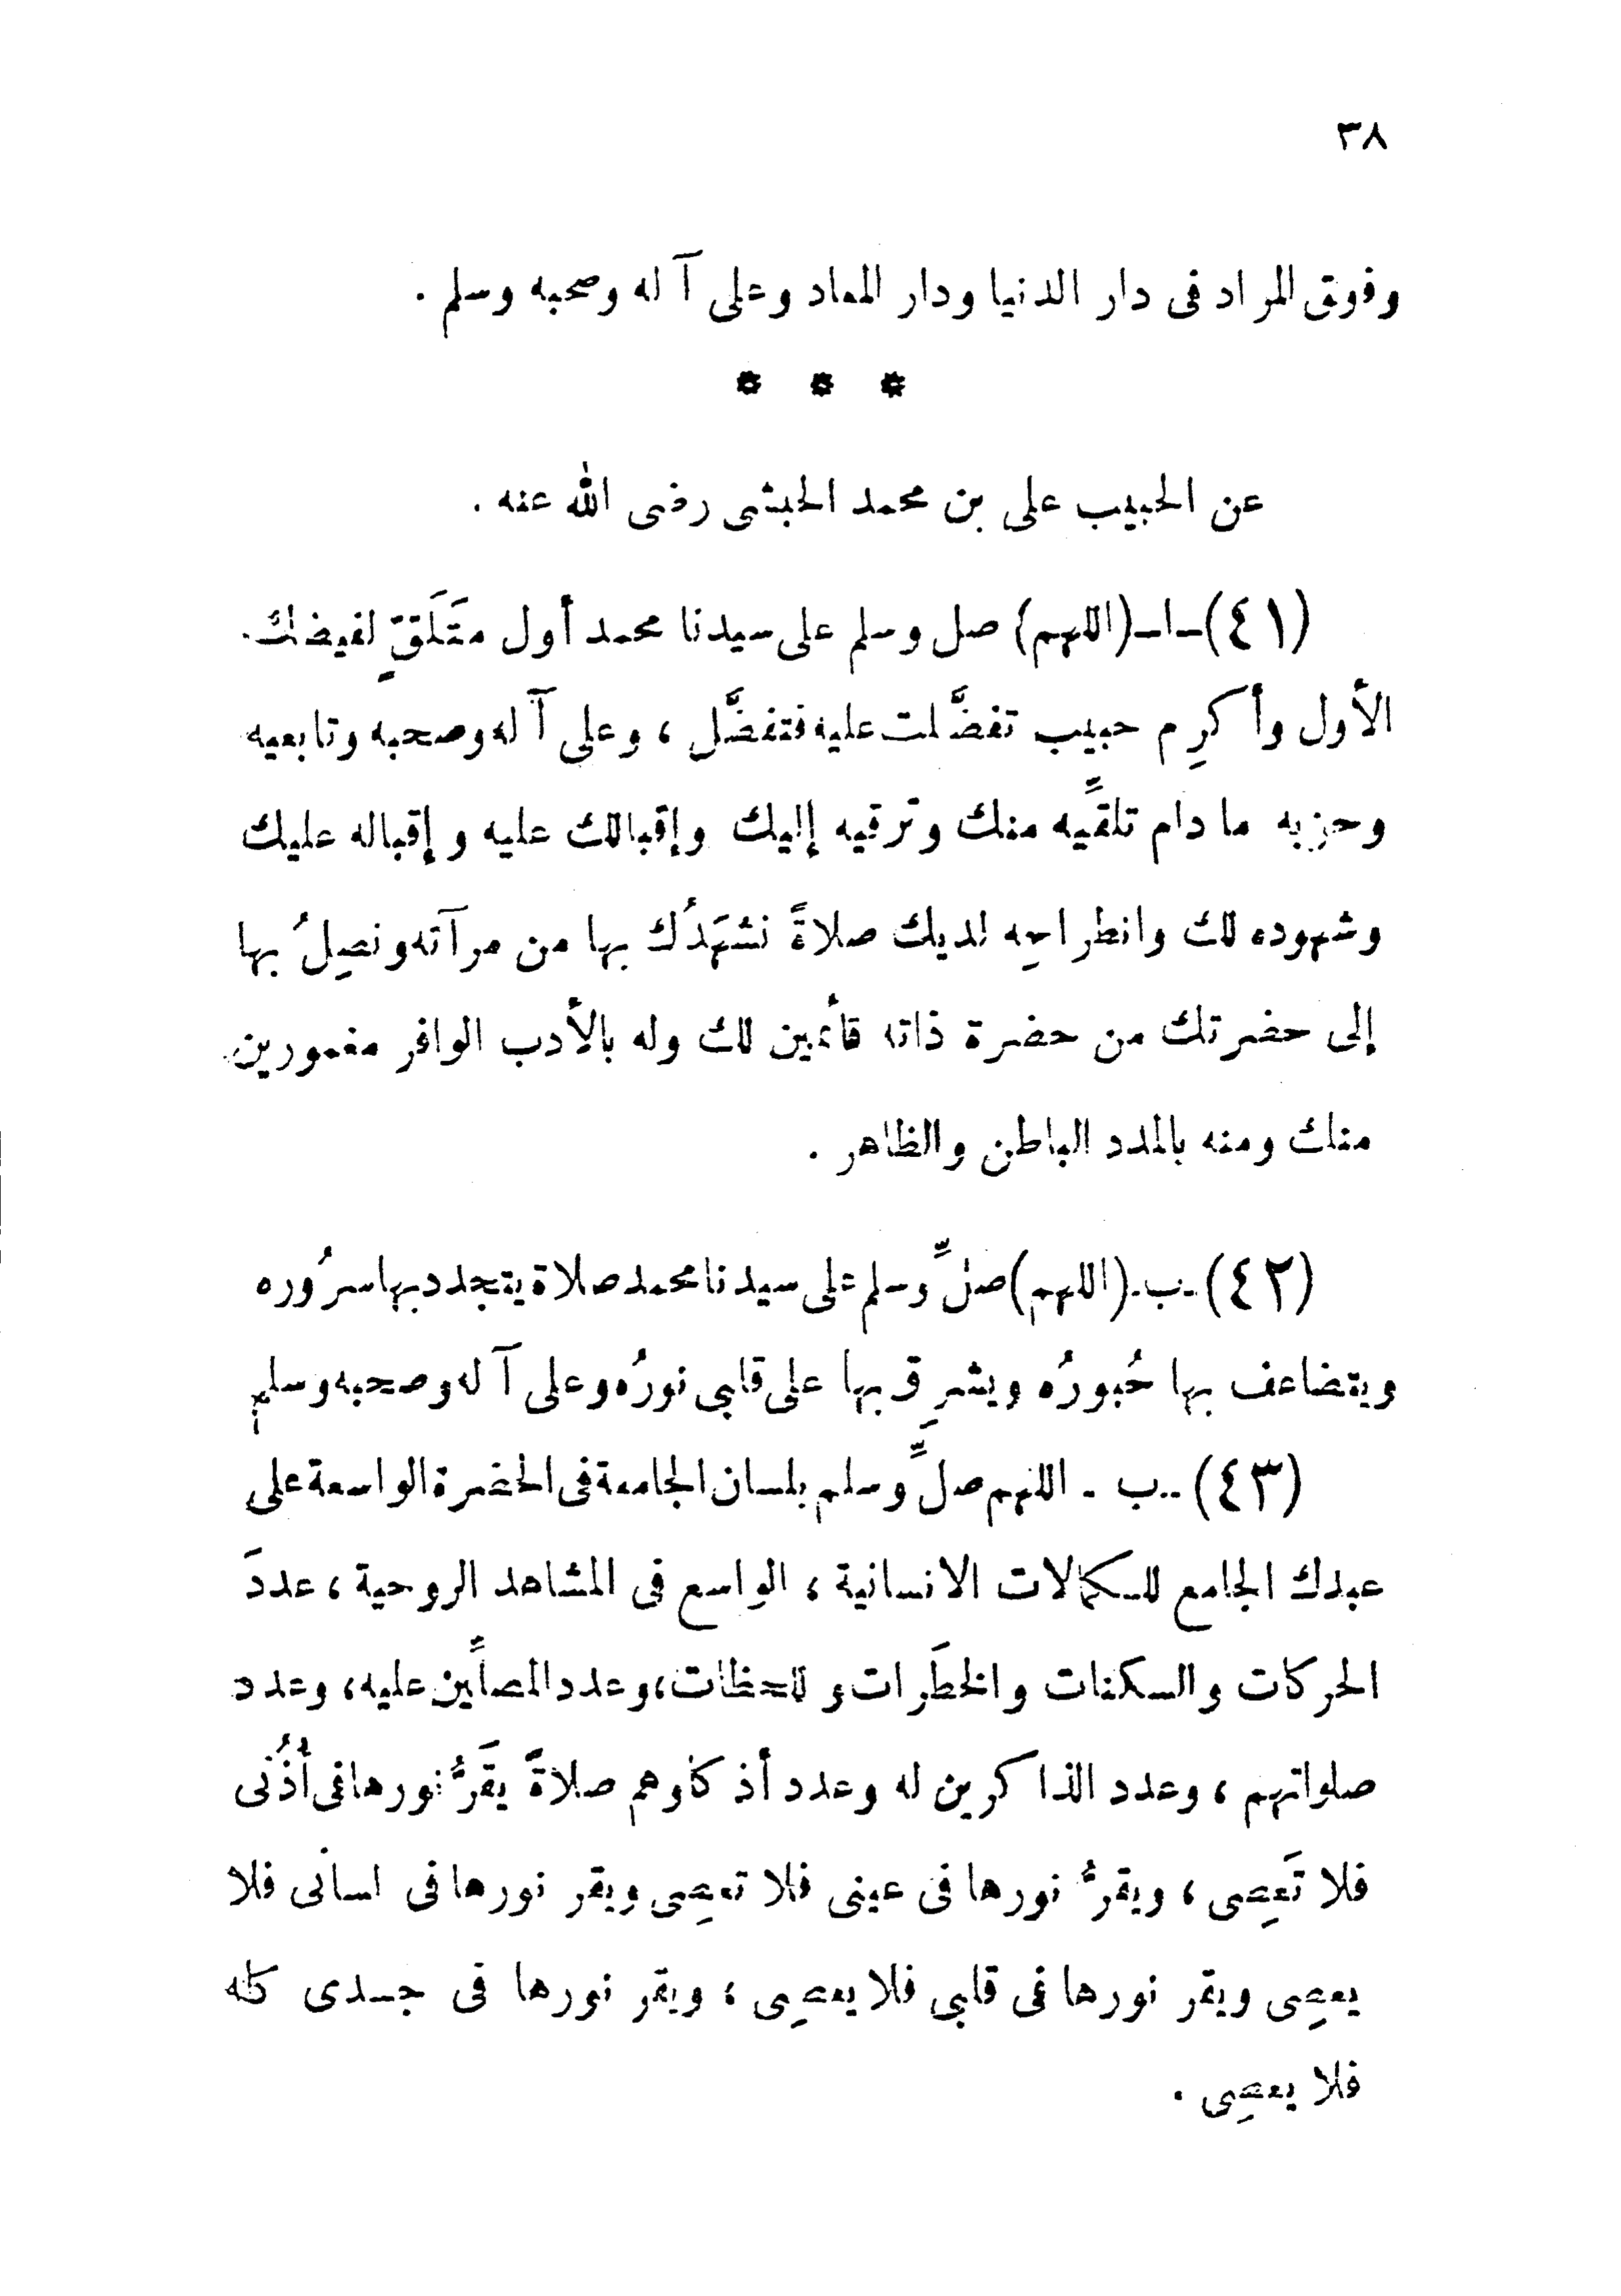 ٣٨
وفوق المراد فى دار الدنيا ودار المعاد وعلى آله وصحبه وسلم .
* * *
عن الحبيب على بن محمد الحبشى رضى الله عنه .
(٤١)ــاــ(اللهم) صل وسلم على سيدنا محمد أول متَلَقٍّ لفيضك
الأول وأكرِم حبيب تفضَّلت عليه فتفضَّل ، وعلى آله وصحبه وتابعيه
وحزبه ما دام تلقِّيه منك وترقيه إليك وإقبالك عليه وإقباله عليك
وشهوده لك وانطراحِه لديك صلاةً نشهَدُك بها من مرآته ونصِلُ بها
إلى حضرتك من حضرة ذاته قائمين لك وله بالأدب الوافر مغمورين
منك ومنه بالمدد الباطن والظاهر .
(٤٢)ـ ب ـ (اللهم) صلِّ وسلم على سيدنا محمد صلاة يتجدد بها سرُوره
ويتضاعف بها حُبورُه ويشرِق بها على قلبى نورُه وعلى آله وصحبه وسلم
(٤٣) ـ ب ـ اللهم صلِّ وسلم بلسان الجامعة فى الحضرة الواسعة على
عبدك الجامع للكمالات الانسانية ، الواسع فى المشاهد الروحية ، عددَ
الحركات والسكنات والخطَرات و للحظات، وعدد المصلِّين عليه، وعدد
صلواتهم ، وعدد الذاكرين له وعدد أذكارهم صلاةً يقَرُّ نورها فى أُذُنى
فلا تَعصِى ، ويقرُّ نورها فى عينى فلا تعصِى ويقر نورها فى لسانى فلا
يعصِى ويقر نورها فى قلبى فلا يعصِى ، ويقر نورها فى جسدى كله
فلا يعصِى .